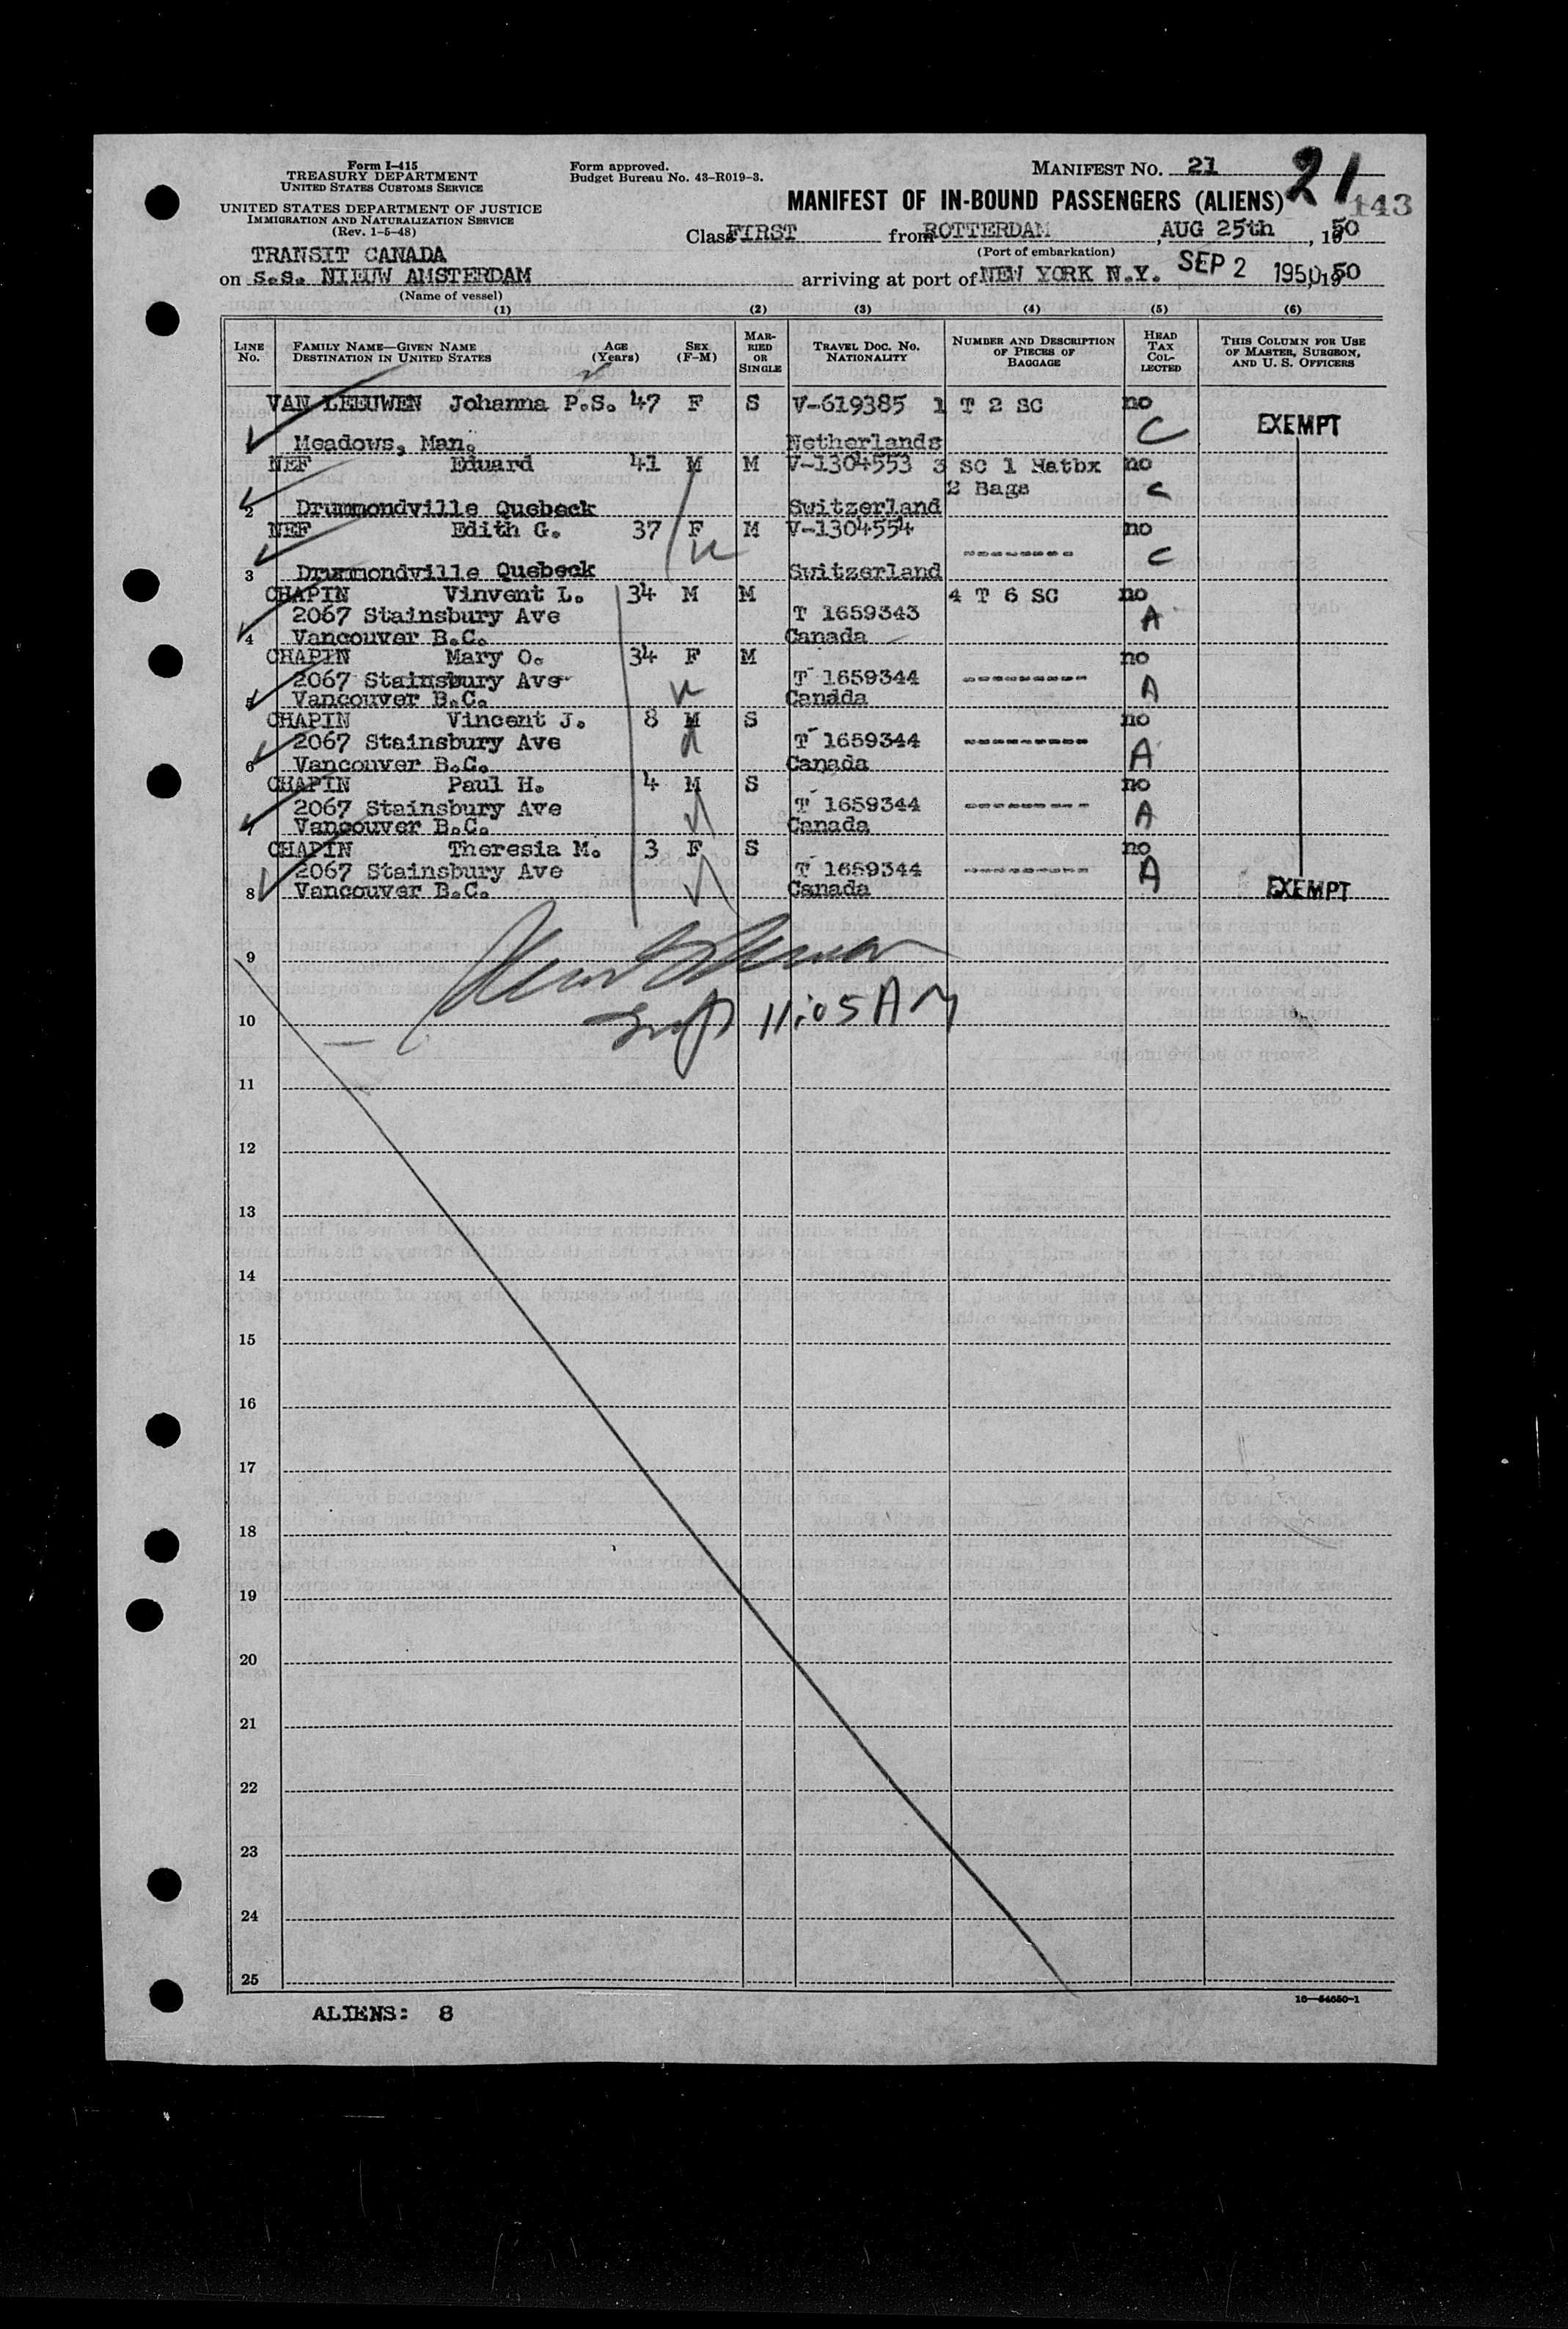 Form I-415
TREASURY DEPARTMENT
UNITED STATES CUSTOMS SERVICE
UNITED STATES DEPARTMENT OF JUSTICE
IMMIGRATION AND NATURALIZATION SERVICE
(Rev. 1-5-48)
Form approved.
Budget Bureau No. 43-R019-3.
MANIFEST NO. 21
21
143
MANIFEST OF IN-BOUND PASSENGERS (ALIENS)
Class FIRST from ROTTERDAM, AUG 25th, 1950
(Port of embarkation)
TRANSIT CANADA
on S.S. NIEUW AMSTERDAM arriving at port of NEW YORK N.Y. SEP 2 1950, 1950
(Name of vessel)
(1) (2) (3) (4) (5) (6)
LINE No. FAMILY NAME—GIVEN NAME DESTINATION IN UNITED STATES AGE (Years) SEX (F-M) MARRIED OR SINGLE TRAVEL DOC. NO. NATIONALITY NUMBER AND DESCRIPTION OF PIECES OF BAGGAGE HEAD TAX COLLECTED THIS COLUMN FOR USE OF MASTER, SURGEON, AND U. S. OFFICERS
VAN LEEUWEN Johanna P.S. 47 F S V-619385 1 T 2 SC no
C EXEMPT
Meadows, Man. Netherlands
NEF Eduard 41 M M V-1304553 3 SC 1 Hatbx no
2 Bags C
2 Drummondville Quebeck Switzerland
NEF Edith G. 37 F M V-1304554 no
-------- C
3 Drummondville Quebeck Switzerland
CHAPIN Vinvent L. 34 M M 4 T 6 SC no
2067 Stainsbury Ave T 1659343 A
4 Vancouver B.C. Canada
CHAPIN Mary O. 34 F M no
2067 Stainsbury Ave T 1659344 -------- A
5 Vancouver B.C. Canada
CHAPIN Vincent J. 8 M S no
2067 Stainsbury Ave T 1659344 -------- A
6 Vancouver B.C. Canada
CHAPIN Paul H. 4 M S no
2067 Stainsbury Ave T 1659344 -------- A
7 Vancouver B.C. Canada
CHAPIN Theresia M. 3 F S no
2067 Stainsbury Ave T 1659344 -------- A
8 Vancouver B.C. Canada EXEMPT
9
10 11:05 AM
11
12
13
14
15
16
17
18
19
20
21
22
23
24
25
ALIENS: 8
16—54650-1